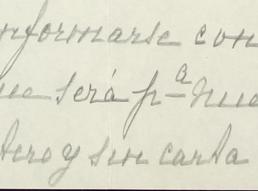 nformarse con
ue será p.ª nue
tero y sin carta